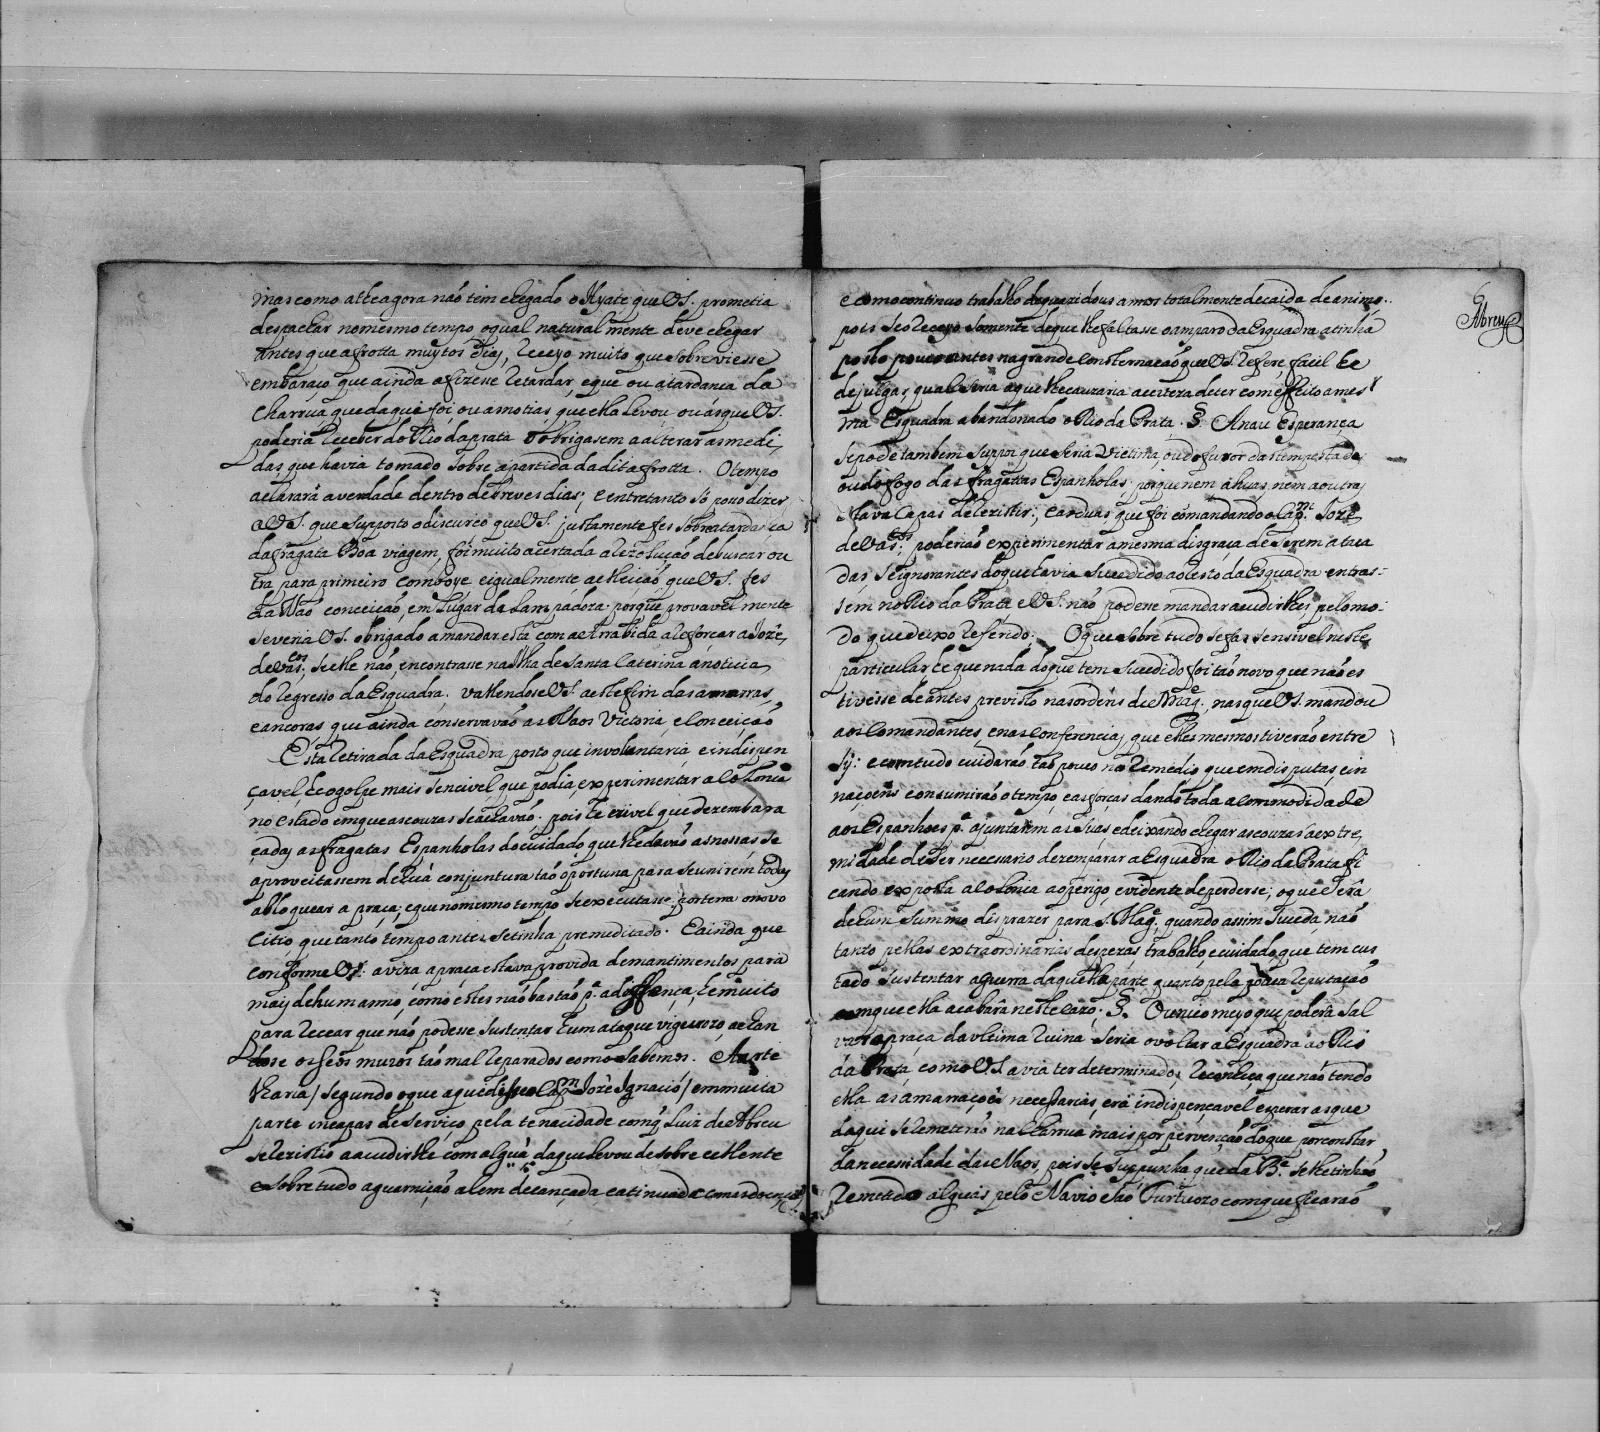 mas como athe agora não tem chegado o Hyate que VS. prometia
despachar no mesmo tempo o qual natural mente deve chegar
antes que a frotta muytos dias, receyo muito que sobreviesse
embaraço que ainda a fizesse retardar, e que ou a tardança da
charrua que daqui foi ou as notias, que ella levou, ou ás que VS.
poderia receber do Rio da prata o obrigasem a alterar as medi
das que havia tomado sobre a partida da dita frotta. O tempo
aclarará a verdade dentro de breves dias; e entretanto só posso dizer
a VS. que supposto o discurço que VS. justamente fes sobre a tardança
da fragata Boa viagem, foi muito acertada a rezolução de buscar ou
tra para primeiro comboye e igualmente a eleição que VS. fes
da Não conceição, em lugar da Lampadoza porque provavel mente
se veria VS. obrigado a mandar esta com a extrahida a reforçar a Jozé,
de Vas.cos, se elle não, encontrasse na Ilha de Santa Caterina a noticia
do regresso da Esquadra, valendose VS. a este fim das amarras,
e ancoras, que ainda conservavão as Naos Victoria, e Conceição
Esta retirada da Esquadra posto que involuntaria, e indispen
çavel, he o golpe mais sencivel que podia, experimentar a Colonia
no estado em que as couzas se achavão. pois he crivel que dezembara
çadas as fragatas Espanholas do cuidado que lhe davão as nossas se
aproveitassem de huã conjuntura tão oportuna para se unirem todas
a bloquear a praça; e que no mesmo tempo se executasse por terra o novo
citio, que tanto tempo antes se tinha premeditado. E ainda que
conforme VS. aviza, a praça estava provida de mantimentos para
mais de hum anno, como estes não bastão p.a a deffença, he muito
para recear que não podesse sustentar hum ataque vigurozo, achan
dose os seos muros tão mal reparados como sabemos. A arte
lharia / segundo o que aqui disse o Cap.m Jozé Ignacio / em muita
parte incapas de serviço pela tenacidade com q. Luiz de Abreu
se rezistio a acudirlhe com algua da que levou de sobrecellente
e sobre tudo a guarnição alem de cançada e atinuada
e com o continuo trabalho de quazi dous annos totalmente decaida de animo..
pois se o receyo somente de que lhe faltasse o amparo da Esquadra a tinhá
posto pouco antes na grande consternação que VS. refere facil he
de julgar, qual seria a que lhe cauzaria a certeza de ter com effeito a mes
ma Esquadra abandonado o Rio da Prata. § A nau Esperança
se pode tambem suppor que seria victima, ou do furor das tempestades
ou do fogo das fragattas Espanholas, porque nem a huas, nem a outras
estava Capas de rezistir; e as duas, que foi comandando o Cap.m Jozé
de Vas.cos, poderião experimentar a mesma disgraça de serem ataca
das se ignorantes do que havia sucedido ao resto da Esquadra entras=
sem no Rio da Prata e VS. não podese mandar acudirlhes, pelo mo=
do que deixo referido. O que sobre tudo se fas sensivel neste
particular, he que nada do que tem sucedido foi tão novo que não es
tivesse de antes previsto nas ordens de S. Mag.e, nas que VS. mandou
aos Comandantes, e nas conferencias, que elles mesmos tiverão entre
sy: e com tudo cuidarão tão pouco no remedio, que em disputas, e in
naçoens consumirão o tempo, e as forças dando toda a commodidade
aos Espanhoes p.a ajuntarem as suas e deixando chegar as couzas a extre,
midade de ser necessario dezemparar a Esquadra o Rio da Prata fi
cando exposta a Colonia ao perigo, evidente de perderse; o que será
de hum summo desprazer para S. Mag.e, quando assim suceda, não
tanto pellas extraordinarias despezas trabalho, e cuidado que tem cus
tado sustentar a guerra daquella parte, quanto pela pouca reputação
com que ella acabará neste cazo. § O unico meyo que poderá sal
var a praça da ultima ruina seria o voltar a Esquadra ao Rio
da Prata, como VS. avia ter determinado, reconheço que não tendo
ella as amarrações necessarias, era indispençavel esperar as que
daqui se remeterão na Charrua mais por pervenção do que por constar
da necessidade das Naos, pois se suppunha que da B.a se lhe tinhão
remetido alguãs pelo Navio São Furtuozo com que ficarão
Abreu